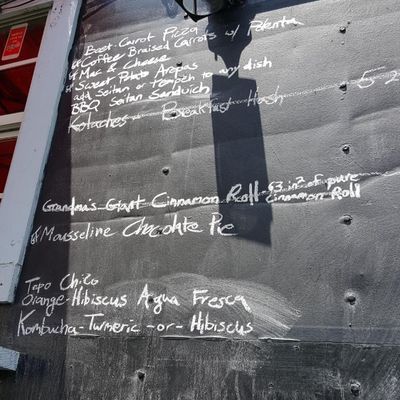 Beet-Carrot Pizza
Coffee Braised Carrots w/ Polenta
Mac & Cheese
Sweet Potato Arepas
add Seitan or Tempeh to any dish
BBQ Seitan Sandwich
Kolaches - Breakfast Hash
Grandma's Giant Cinnamon Roll - 53 in² of pure
cinnamon Roll
Mousseline Chocolate Pie
Topo Chico
Orange-Hibiscus Agua Fresca
Kombucha-Turmeric -or- Hibiscus